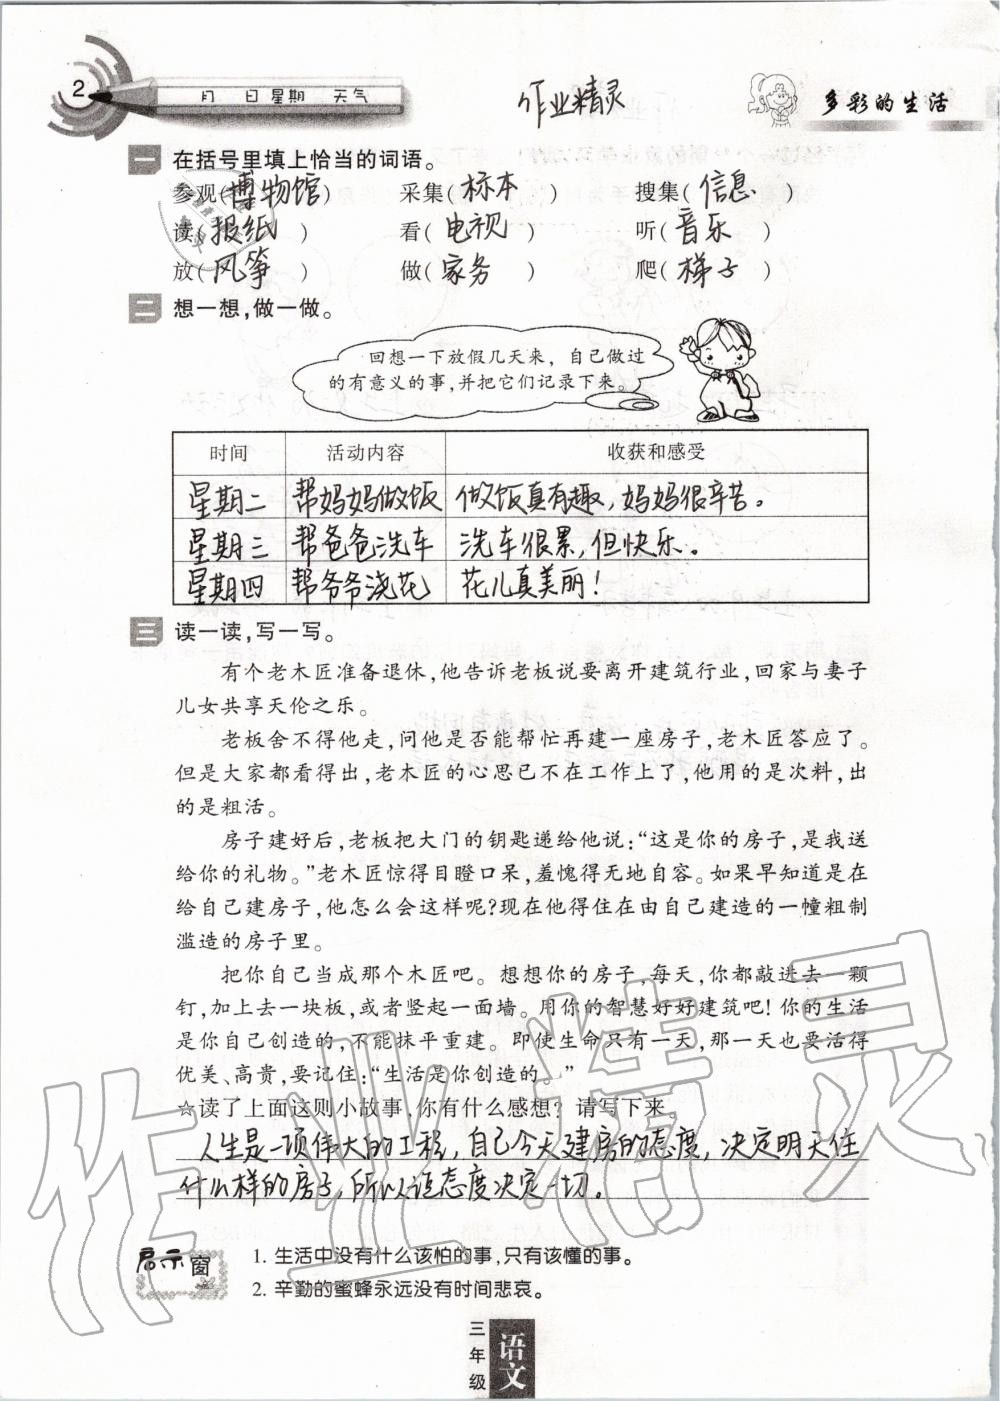 2
月 日 星期 天气
作业精灵
多彩的生活
一 在括号里填上恰当的词语。
参观(博物馆) 采集(标本) 搜集(信息)
读(报纸) 看(电视) 听(音乐)
放(风筝) 做(家务) 爬(梯子)
二 想一想,做一做。
回想一下放假几天来，自己做过
的有意义的事,并把它们记录下来。
时间 活动内容 收获和感受
星期二 帮妈妈做饭 做饭真有趣，妈妈很辛苦。
星期三 帮爸爸洗车 洗车很累，但快乐。
星期四 帮爷爷浇花 花儿真美丽！
三 读一读,写一写。
有个老木匠准备退休,他告诉老板说要离开建筑行业,回家与妻子
儿女共享天伦之乐。
老板舍不得他走,问他是否能帮忙再建一座房子,老木匠答应了。
但是大家都看得出,老木匠的心思已不在工作上了,他用的是次料,出
的是粗活。
房子建好后,老板把大门的钥匙递给他说:“这是你的房子,是我送
给你的礼物。”老木匠惊得目瞪口呆,羞愧得无地自容。如果早知道是在
给自己建房子,他怎么会这样呢?现在他得住在由自己建造的一幢粗制
滥造的房子里。
把你自己当成那个木匠吧。想想你的房子,每天,你都敲进去一颗
钉,加上去一块板,或者竖起一面墙。用你的智慧好好建筑吧!你的生活
是你自己创造的,不能抹平重建。即使生命只有一天,那一天也要活得
优美、高贵,要记住:“生活是你创造的。”
☆读了上面这则小故事,你有什么感想？请写下来
人生是一项伟大的工程，自己今天建房的态度，决定明天住
什么样的房子，所以说态度决定一切。
启示窗
1. 生活中没有什么该怕的事,只有该懂的事。
2. 辛勤的蜜蜂永远没有时间悲哀。
三年级 语文
作业精灵